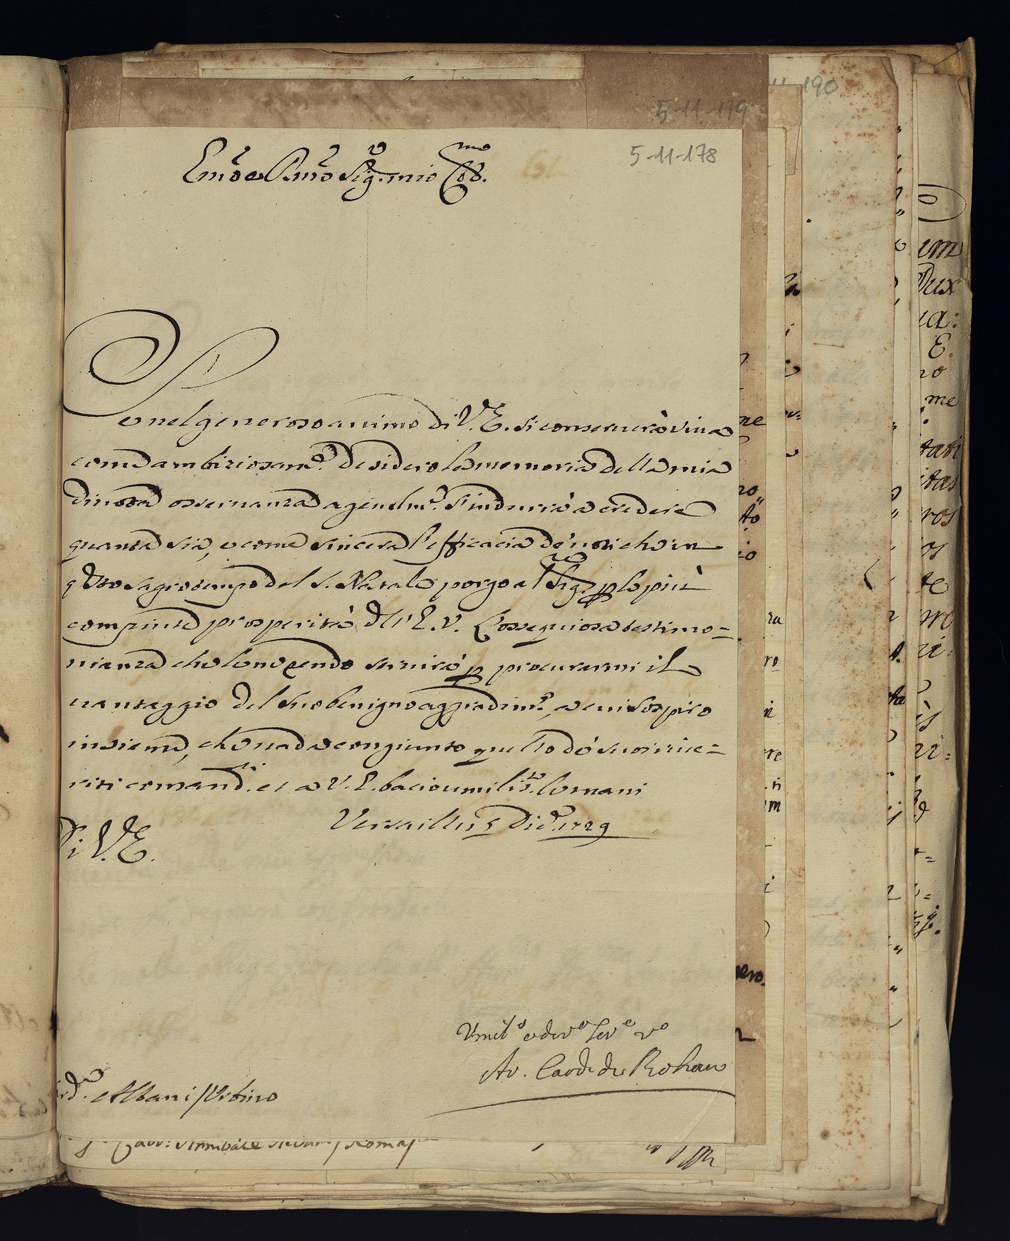 5-11-119
190
5-11-178
Em.o e R.mo Sig.r mio Col.mo
Se nel generoso animo di V.E. si conserverà viva
come ambiziosam.te desidero la memoria della mia
divota osservanza agevolm.te s'indurrà a credere
quanta sia, e come sincera l'efficacia de' voti che in
q.sto sagro tempo del S. Natale porgo al Sig.re p lo più
compiuta prosperità dell'E.V. L'ossequiosa testimo=
nianza che le ne rendo servirà p procurarmi il
vantaggio del suo benigno aggradim.to, a cui sospiro
insieme, che vada congiunto quello de' suoi rive=
riti comandi. et a V.E. bacio umiliss.te le mani
Versailles 5 Dic.e 1729
Di V.E.
Umil.o e dev.o Ser.e v.o
Ar. Card. de Rohan
Card. Albani / Urbino
Annibale Albani / Roma